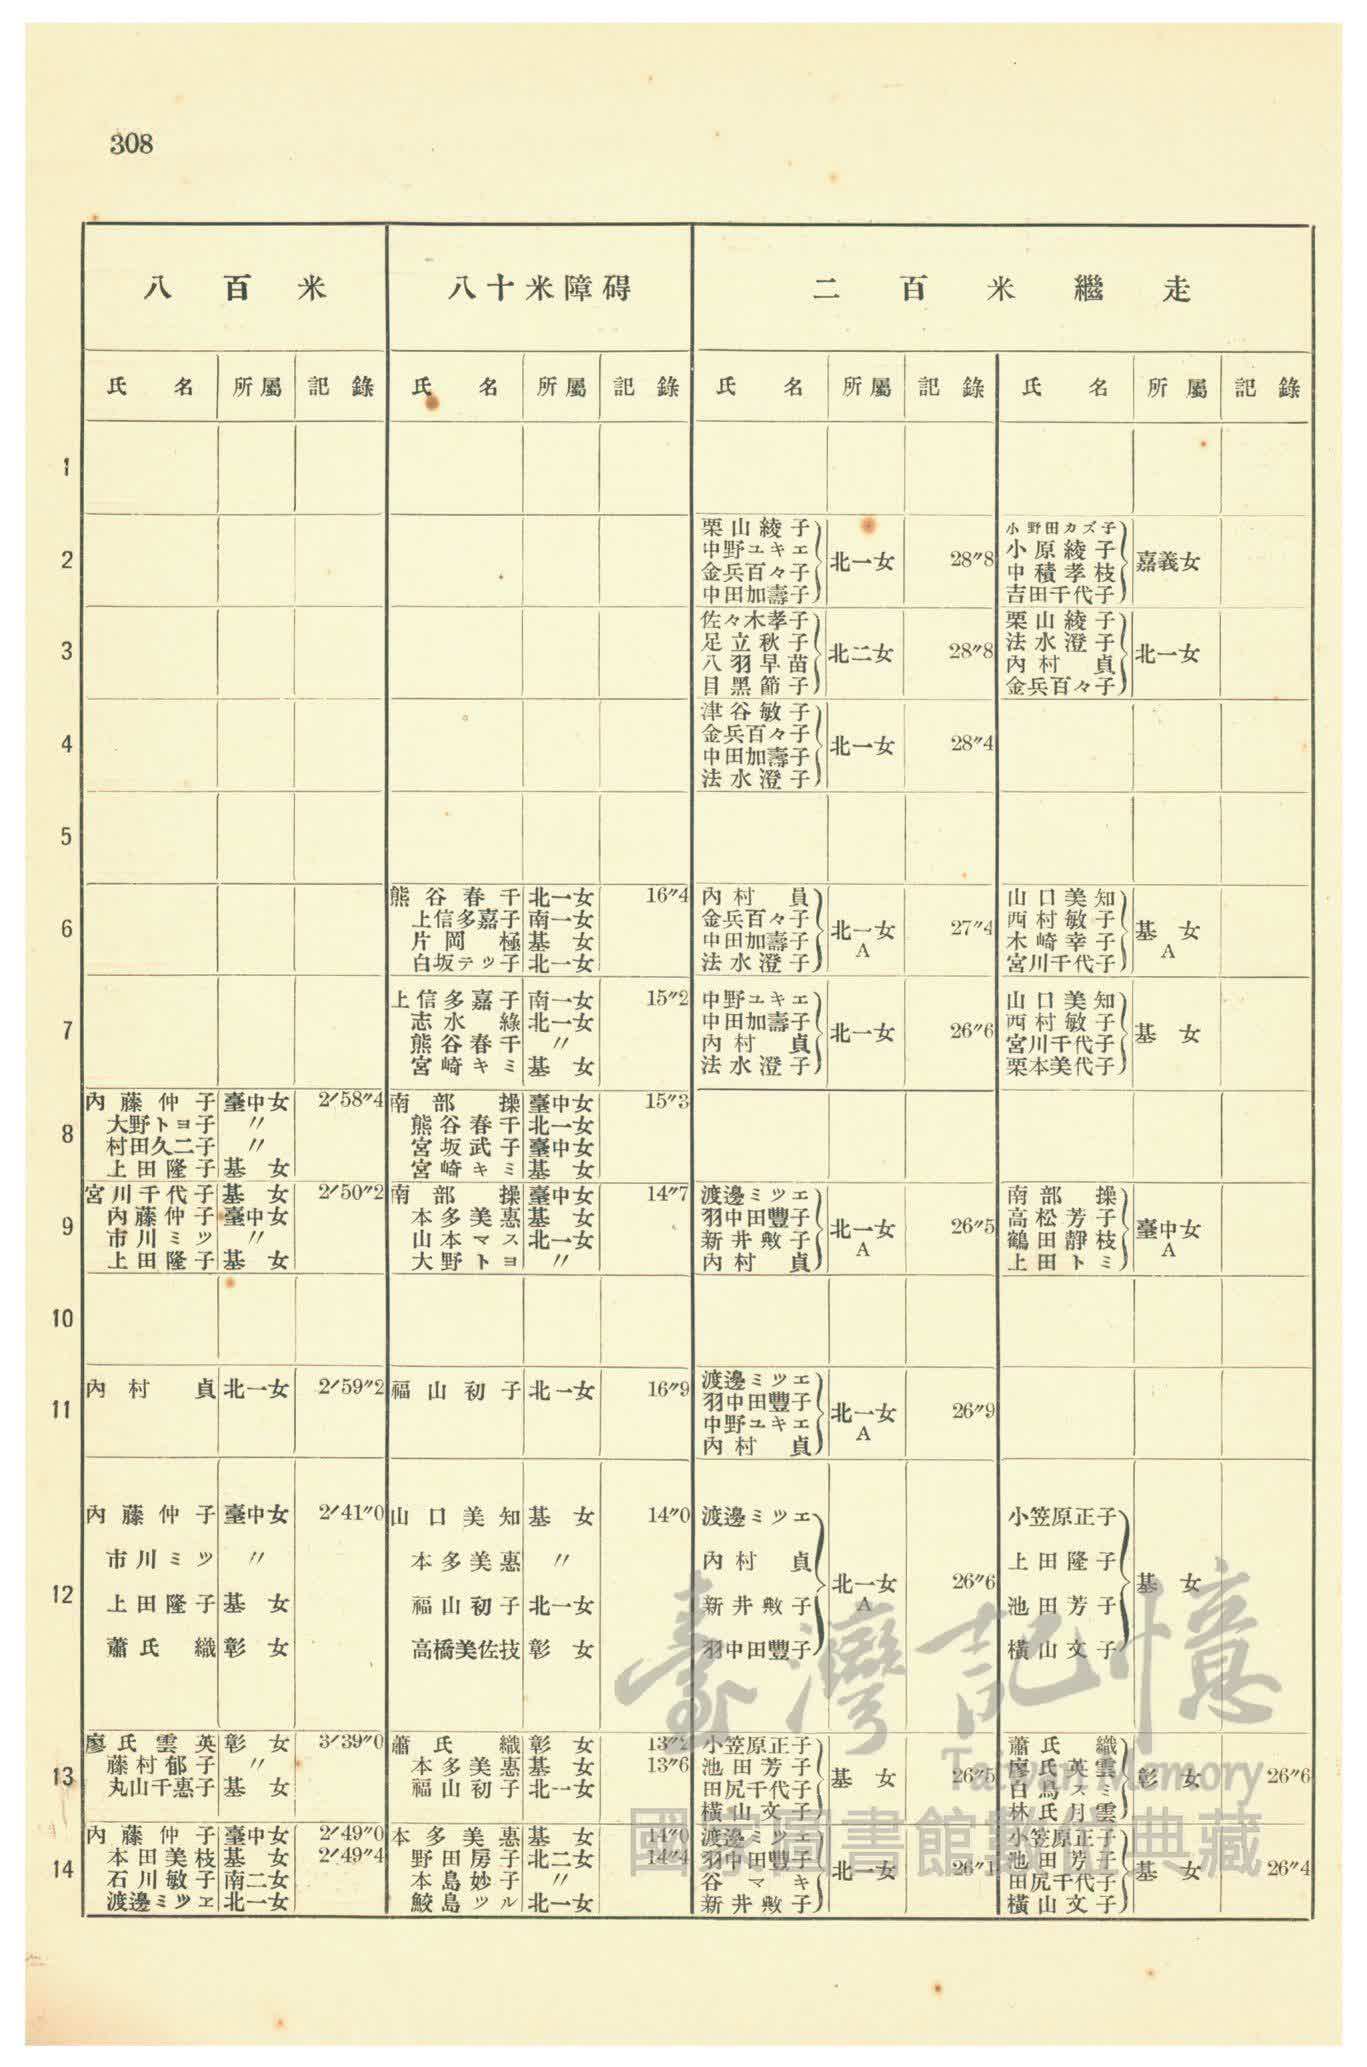 308
八百米 八十米障碍 二百米繼走
氏名 所屬 記錄 氏名 所屬 記錄 氏名 所屬 記錄 氏名 所屬 記錄
1
2
栗山綾子 小野田カズ子
中野ユキエ 小原綾子
北一女 28″8 嘉義女
金兵百々子 中積孝枝
中田加壽子 吉田千代子
3
佐々木孝子 栗山綾子
足立秋子 法水澄子
北二女 28″8 北一女
八羽早苗 內村貞
目黑節子 金兵百々子
4
津谷敏子
金兵百々子
北一女 28″4
中田加壽子
法水澄子
5
6
熊谷春千 北一女 16″4 內村員 山口美知
上信多嘉子 南一女 金兵百々子 西村敏子
北一女A 27″4 基女A
片岡極 基女 中田加壽子 木崎幸子
白坂テッ子 北一女 法水澄子 宮川千代子
7
上信多嘉子 南一女 15″2 中野ユキエ 山口美知
志水綠 北一女 中田加壽子 西村敏子
北一女 26″6 基女
熊谷春千 〃 內村貞 宮川千代子
宮崎キミ 基女 法水澄子 栗本美代子
8
內藤仲子 臺中女 2′58″4 南部操 臺中女 15″3
大野トヨ子 〃 熊谷春千 北一女
村田久二子 〃 宮坂武子 臺中女
上田隆子 基女 宮崎キミ 基女
9
宮川千代子 基女 2′50″2 南部操 臺中女 14″7 渡邊ミツエ 南部操
內藤仲子 臺中女 本多美惠 基女 羽中田豐子 高松芳子
北一女A 26″5 臺中女A
市川ミツ 〃 山本マス 北一女 新井敷子 鶴田靜枝
上田隆子 基女 大野トヨ 〃 內村貞 上田トミ
10
11
內村貞 北一女 2′59″2 福山初子 北一女 16″9 渡邊ミツエ
羽中田豐子
北一女A 26″9
中野ユキエ
內村貞
12
內藤仲子 臺中女 2′41″0 山口美知 基女 14″0 渡邊ミツエ 小笠原正子
市川ミツ 〃 本多美惠 〃 內村貞 上田隆子
北一女A 26″6 基女
上田隆子 基女 福山初子 北一女 新井敷子 池田芳子
蕭氏織 彰女 高橋美佐技 彰女 羽中田豐子 橫山文子
13
廖氏雲英 彰女 3′39″0 蕭氏織 彰女 13″2 小笠原正子 蕭氏織
藤村郁子 〃 本多美惠 基女 13″6 池田芳子 廖氏英雲
基女 26″5 彰女 26″6
丸山千惠子 基女 福山初子 北一女 田尻千代子 白鳥スミ
橫山文子 林氏月雲
14
內藤仲子 臺中女 2′49″0 本多美惠 基女 14″0 渡邊ミツエ 小笠原正子
本田美枝 基女 2′49″4 野田房子 北二女 14″4 羽中田豐子 池田芳子
北一女 26″1 基女 26″4
石川敏子 南二女 本島妙子 〃 谷マキ 田尻千代子
渡邊ミツヱ 北一女 鮫島ツル 北一女 新井敷子 橫山文子
臺灣記憶
Taiwan Memory
國家圖書館數位典藏